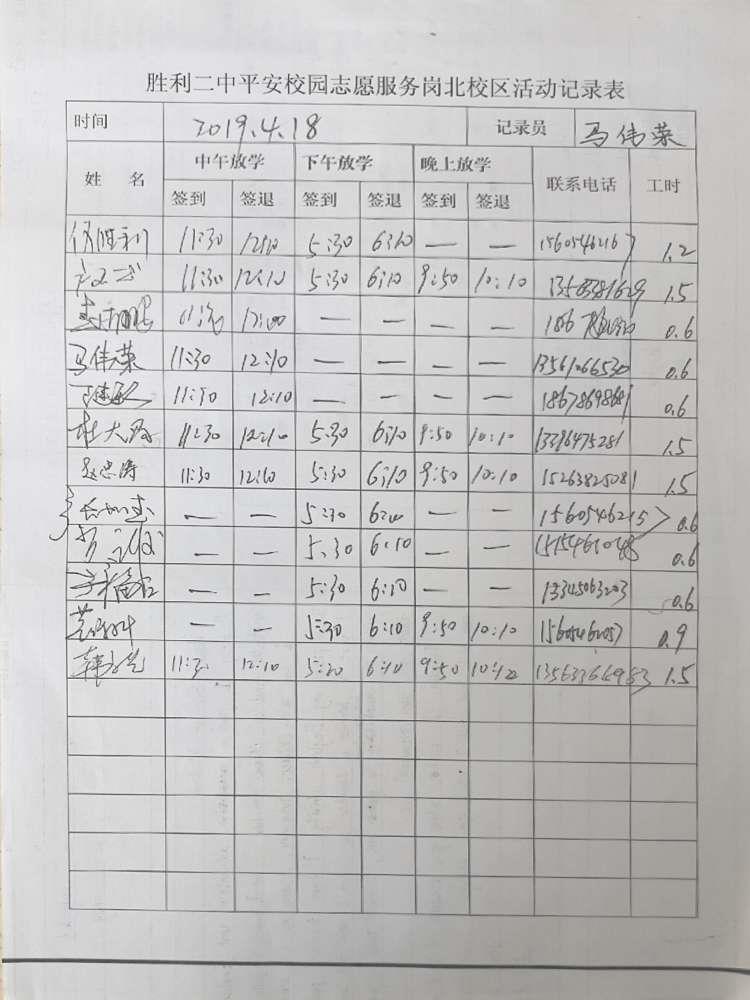 胜利二中平安校园志愿服务岗北校区活动记录表
时间 2019.4.18 记录员 马伟荣
姓 名 中午放学 下午放学 晚上放学 联系电话 工时
签到 签退 签到 签退 签到 签退
胜利 11:30 12:10 5:30 6:10 — — 15605462167 1.2
11:30 12:10 5:30 6:10 9:50 10:10 1.5
12:00 — — — — 0.6
马伟荣 11:30 12:10 — — — — 13561066530 0.6
11:30 12:10 — — — — 18678698681 0.6
杜大 11:30 12:10 5:30 6:10 9:50 10:10 13396475281 1.5
赵忠涛 11:30 12:10 5:30 6:10 9:50 10:10 15263825081 1.5
— — 5:30 6:00 — — 1560546215 0.6
— — 5:30 6:10 — — 0.6
— — 5:30 6:10 — — 13345063203 0.6
— — 5:30 6:10 9:50 10:10 15605462057 0.9
韩 12:10 6:10 9:50 13563364983 1.5